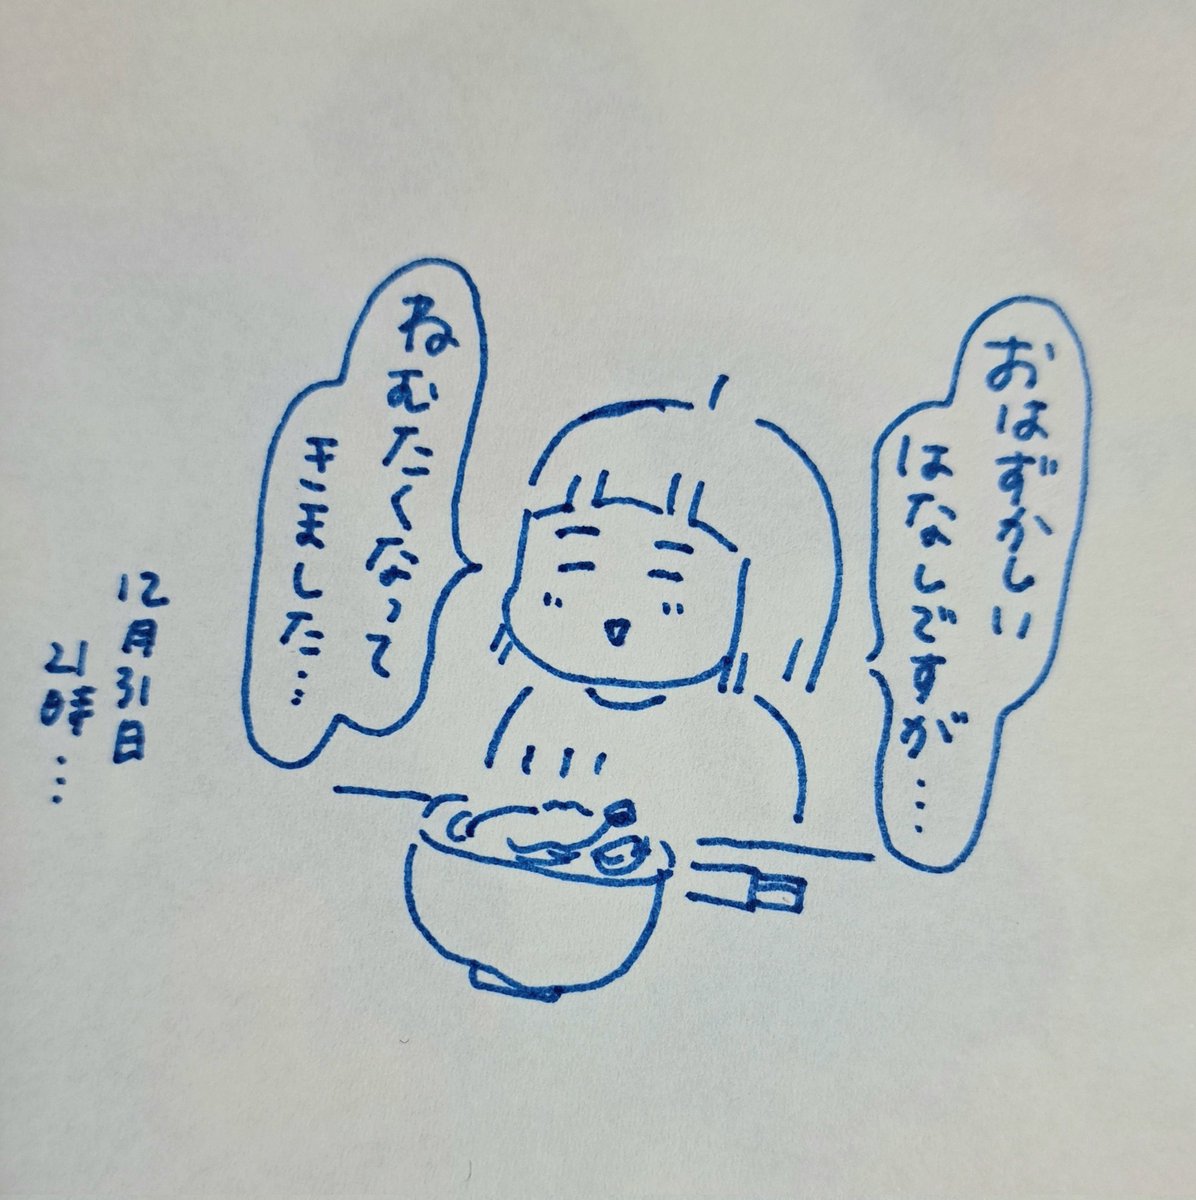 おはずかしい
はなしですが…
ねむたくなって
きました…
12月31日
21時…